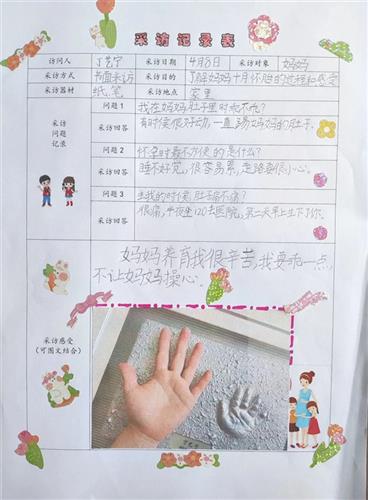 采访记录表
访问人 丁艺宁 采访日期 4月8日 采访对象 妈妈
采访方式 书面采访 采访目的 了解妈妈十月怀胎的过程和感受
采访器材 纸、笔 采访地点 家里
采访问题记录
问题1 我在妈妈肚子里时乖不乖?
采访回答 有时候很好动,一直踢妈妈的肚子。
问题2 怀孕时最不方便的是什么?
采访回答 睡不好觉,很容易累,走路要很小心。
问题3 生我的时候,肚子痛不痛?
采访回答 很痛,半夜坐120去医院,第二天早上生下了你。
采访感受
(可图文结合)
妈妈养育我很辛苦,我要乖一点,
不让妈妈操心。